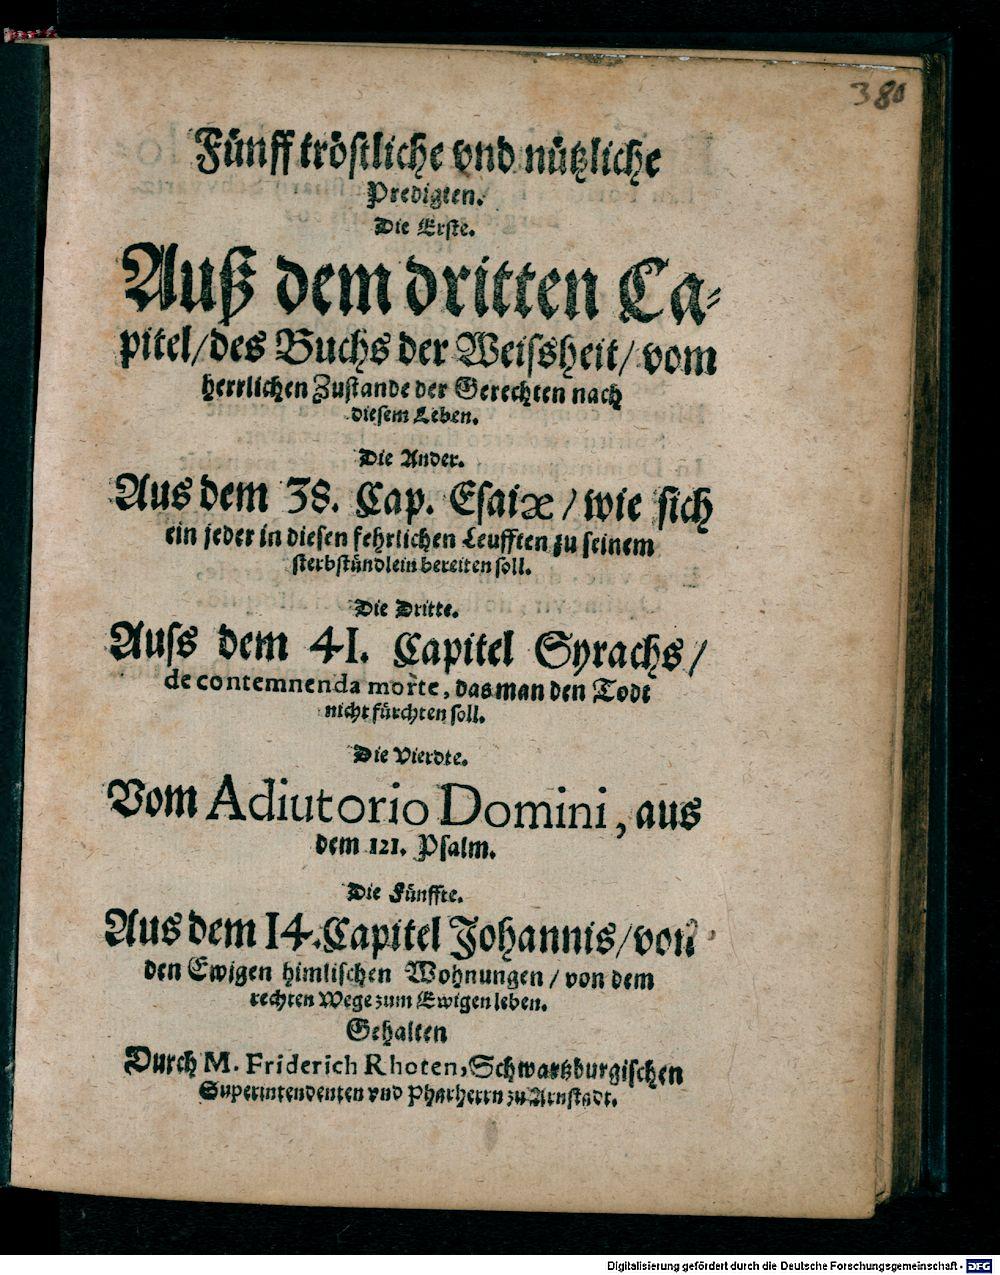 380
Fünff tröstliche vnd nützliche
Predigten.
Die Erste.
Auß dem dritten Ca⸗
pitel/ des Buchs der Weiſsheit/ vom
herrlichen Zustande der Gerechten nach
diesem Leben.
Die Ander.
Aus dem 38. Cap. Esaiæ / wie sich
ein jeder in diesen fehrlichen Leufften zu seinem
sterbstündlein bereiten soll.
Die Dritte.
Auſs dem 41. Capitel Syrachs/
de contemnenda morte, das man den Todt
nicht fürchten soll.
Die Vierdte.
Vom Adiutorio Domini, aus
dem 121. Psalm.
Die Fünffte.
Aus dem 14. Capitel Johannis/ von
den Ewigen himlischen Wohnungen / von dem
rechten Wege zum Ewigen leben.
Gehalten
Durch M. Friderich Rhoten, Schwartzburgischen
Superintendenten vnd Pharherrn zu Arnstadt.
Digitalisierung gefördert durch die Deutsche Forschungsgemeinschaft - DFG